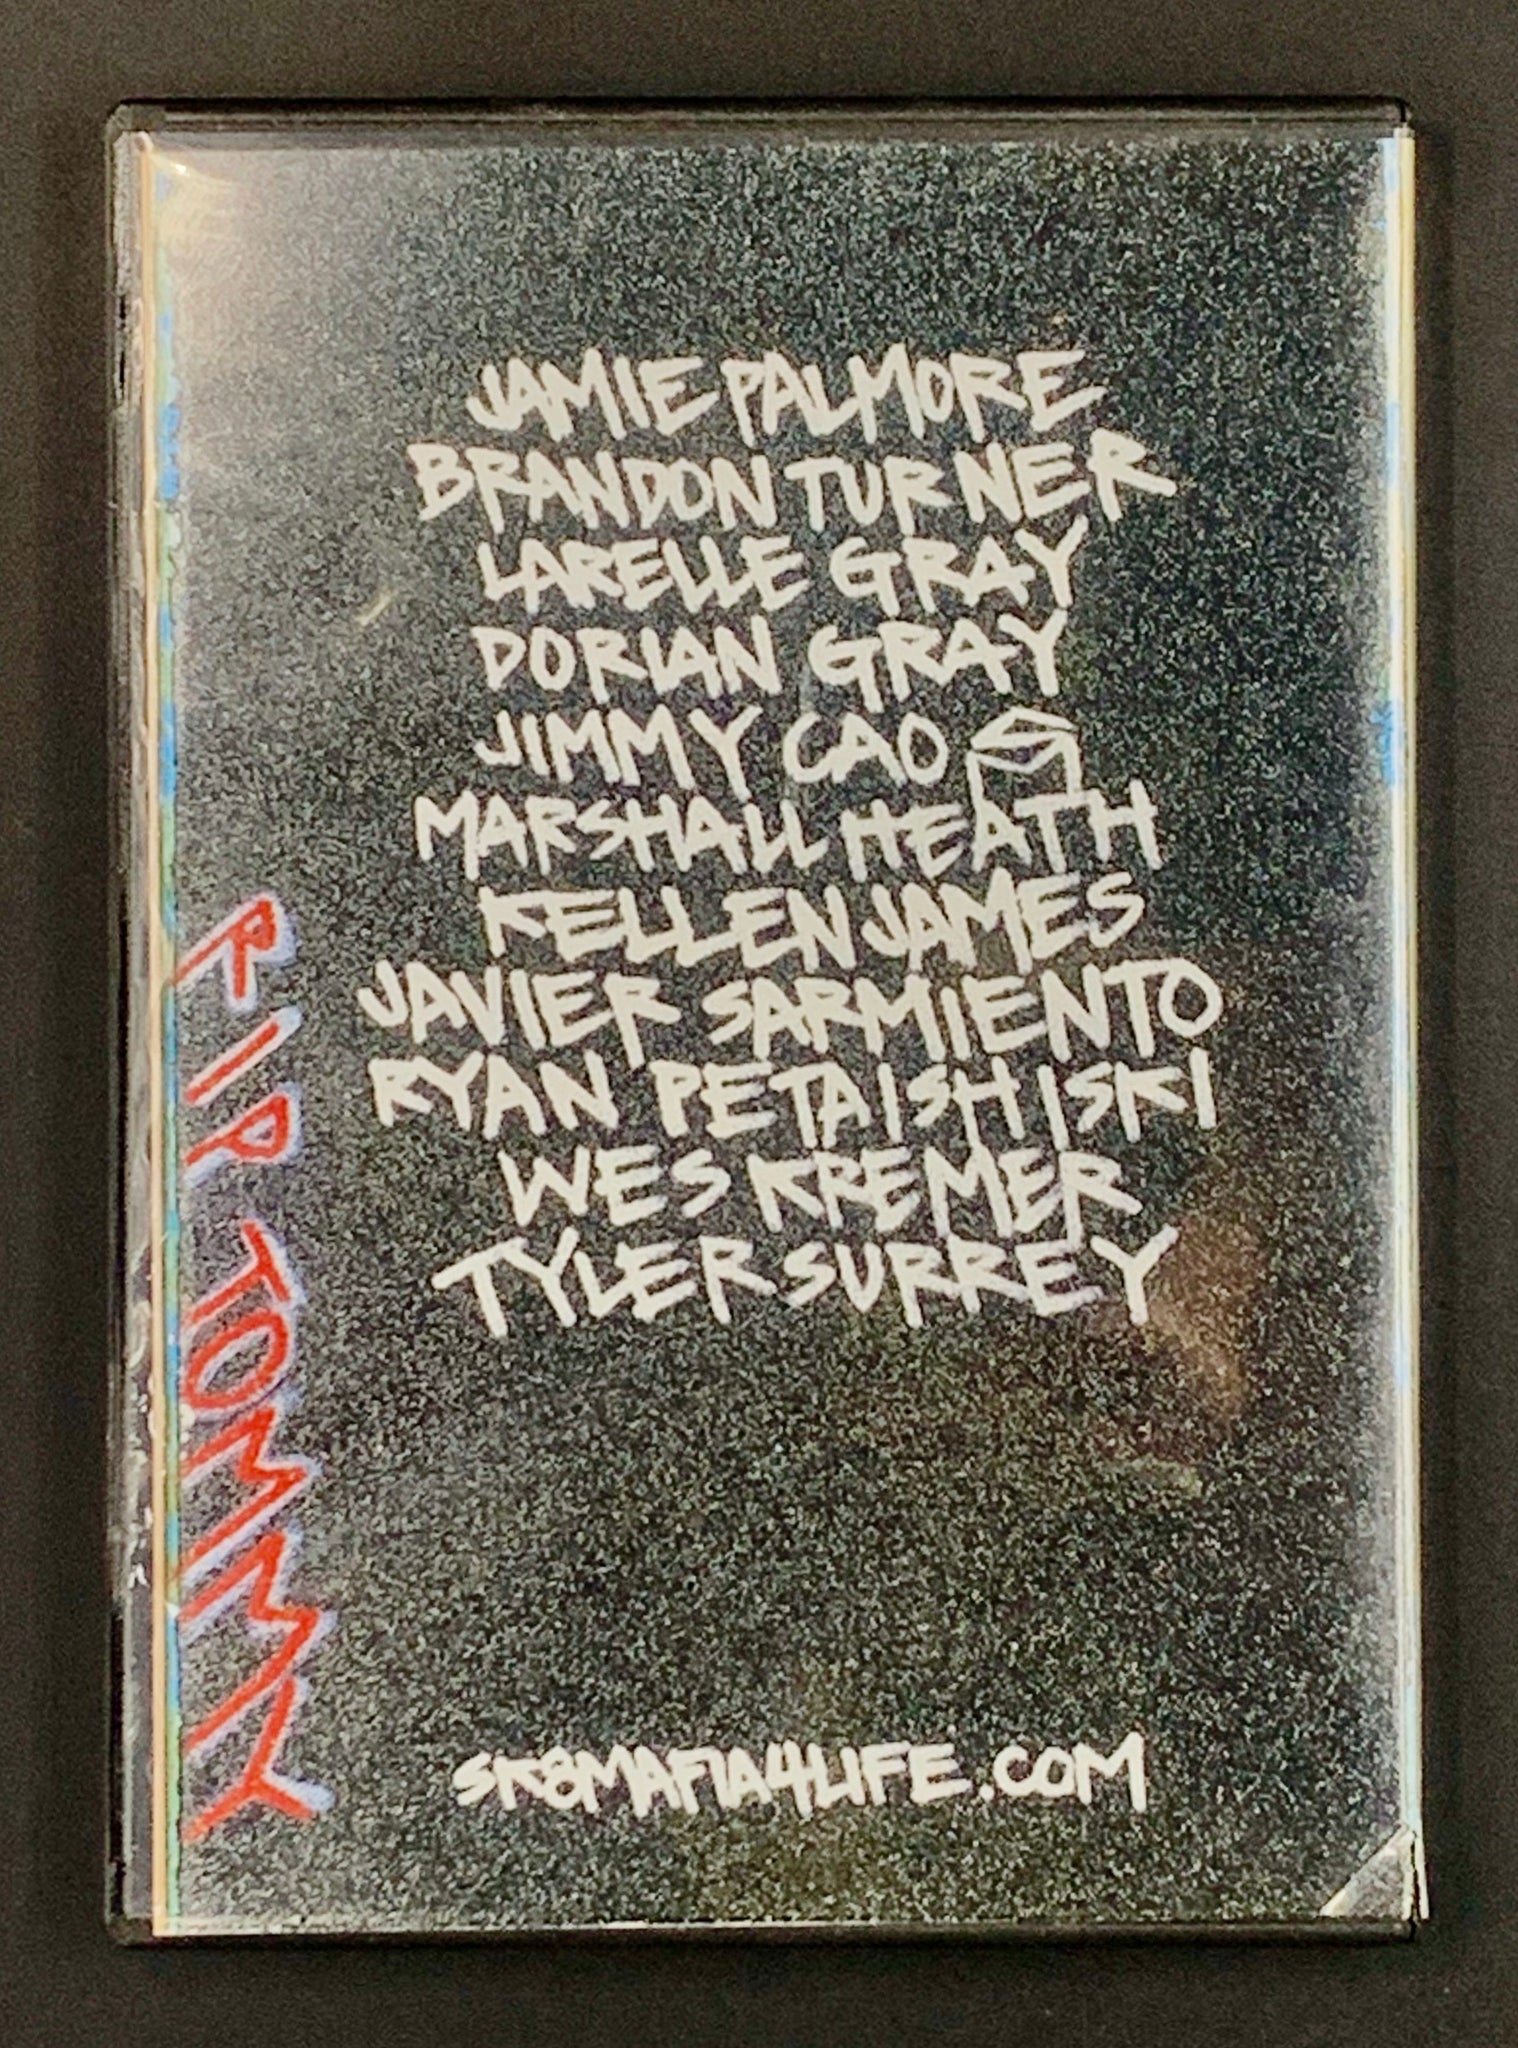 JAMIE PALMORE
BRANDON TURNER
LARELLE GRAY
DORIAN GRAY
JIMMY CAO
MARSHALL HEATH
KELLEN JAMES
JAVIER SARMIENTO
RYAN PETAISHISKI
WES KREMER
TYLER SURREY
RIP TOMMY
SK8MAFIA4LIFE.COM